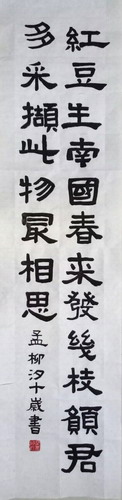 紅豆生南國春来發幾枝願君
多采擷此物最相思
孟柳汐十歲書